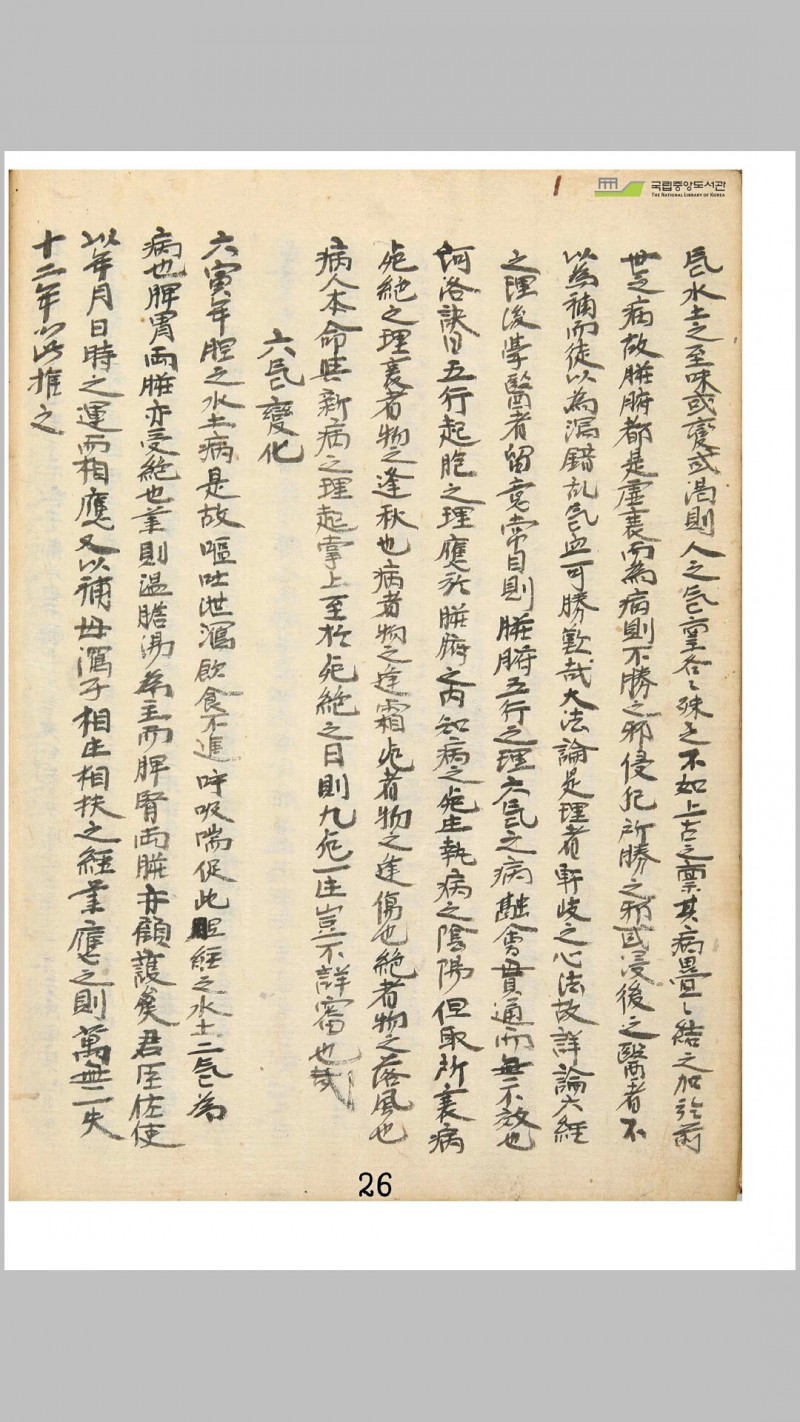 국립중앙도서관
THE NATIONAL LIBRARY OF KOREA
1
气水土之至味或變或渴則人之气稟各〻殊之不如上古之稟其病疊〻結之加於前
世之病故臟腑都是虛衰而為病則不勝之邪侵犯所勝之邪或浸後之醫者不
以為補而徒以為瀉錯乱气血可勝歎哉大法論是理者軒歧之心法故詳論六經
之理後學醫者留意常目則臟腑五行之理六气之病融會貫通而無不效也
河洛訣曰五行起胞之理應於臟腑之內知病之死生執病之陰陽但取所衰病
死絶之理衰者物之逢秋也病者物之逢霜死者物之逢傷也絶者物之落風也
病人本命與新病之理起掌上至於死絶之日則九死一生豈不詳審也哉
六气變化
六寅年腔之水土病是故嘔吐泄瀉飲食不進呼吸喘促此胆經之水土二气為
病也脾胃兩臟亦受絶也業則温膽湯為主而脾腎兩臟亦顧護矣君臣佐使
以年月日時之運而相應又以補母瀉子相生相扶之經業應之則萬無一失
十二年以此推之
26